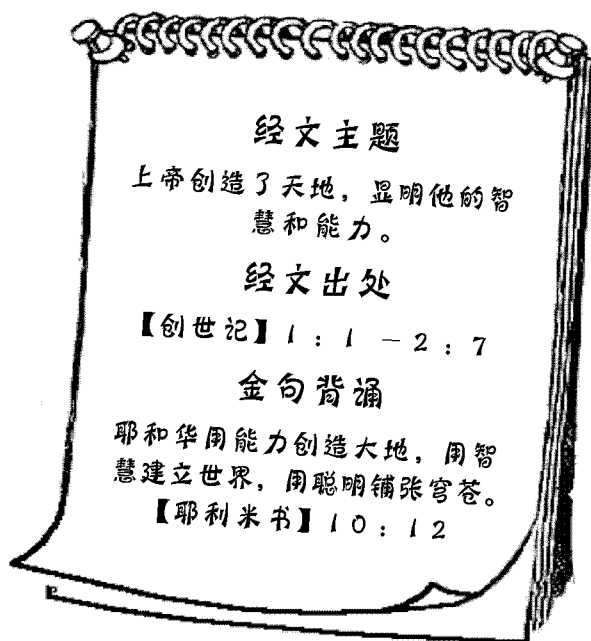 经文主题
上帝创造了天地，显明他的智
慧和能力。
经文出处
【创世记】1：1－2：7
金句背诵
耶和华用能力创造大地，用智
慧建立世界，用聪明铺张穹苍。
【耶利米书】10：12